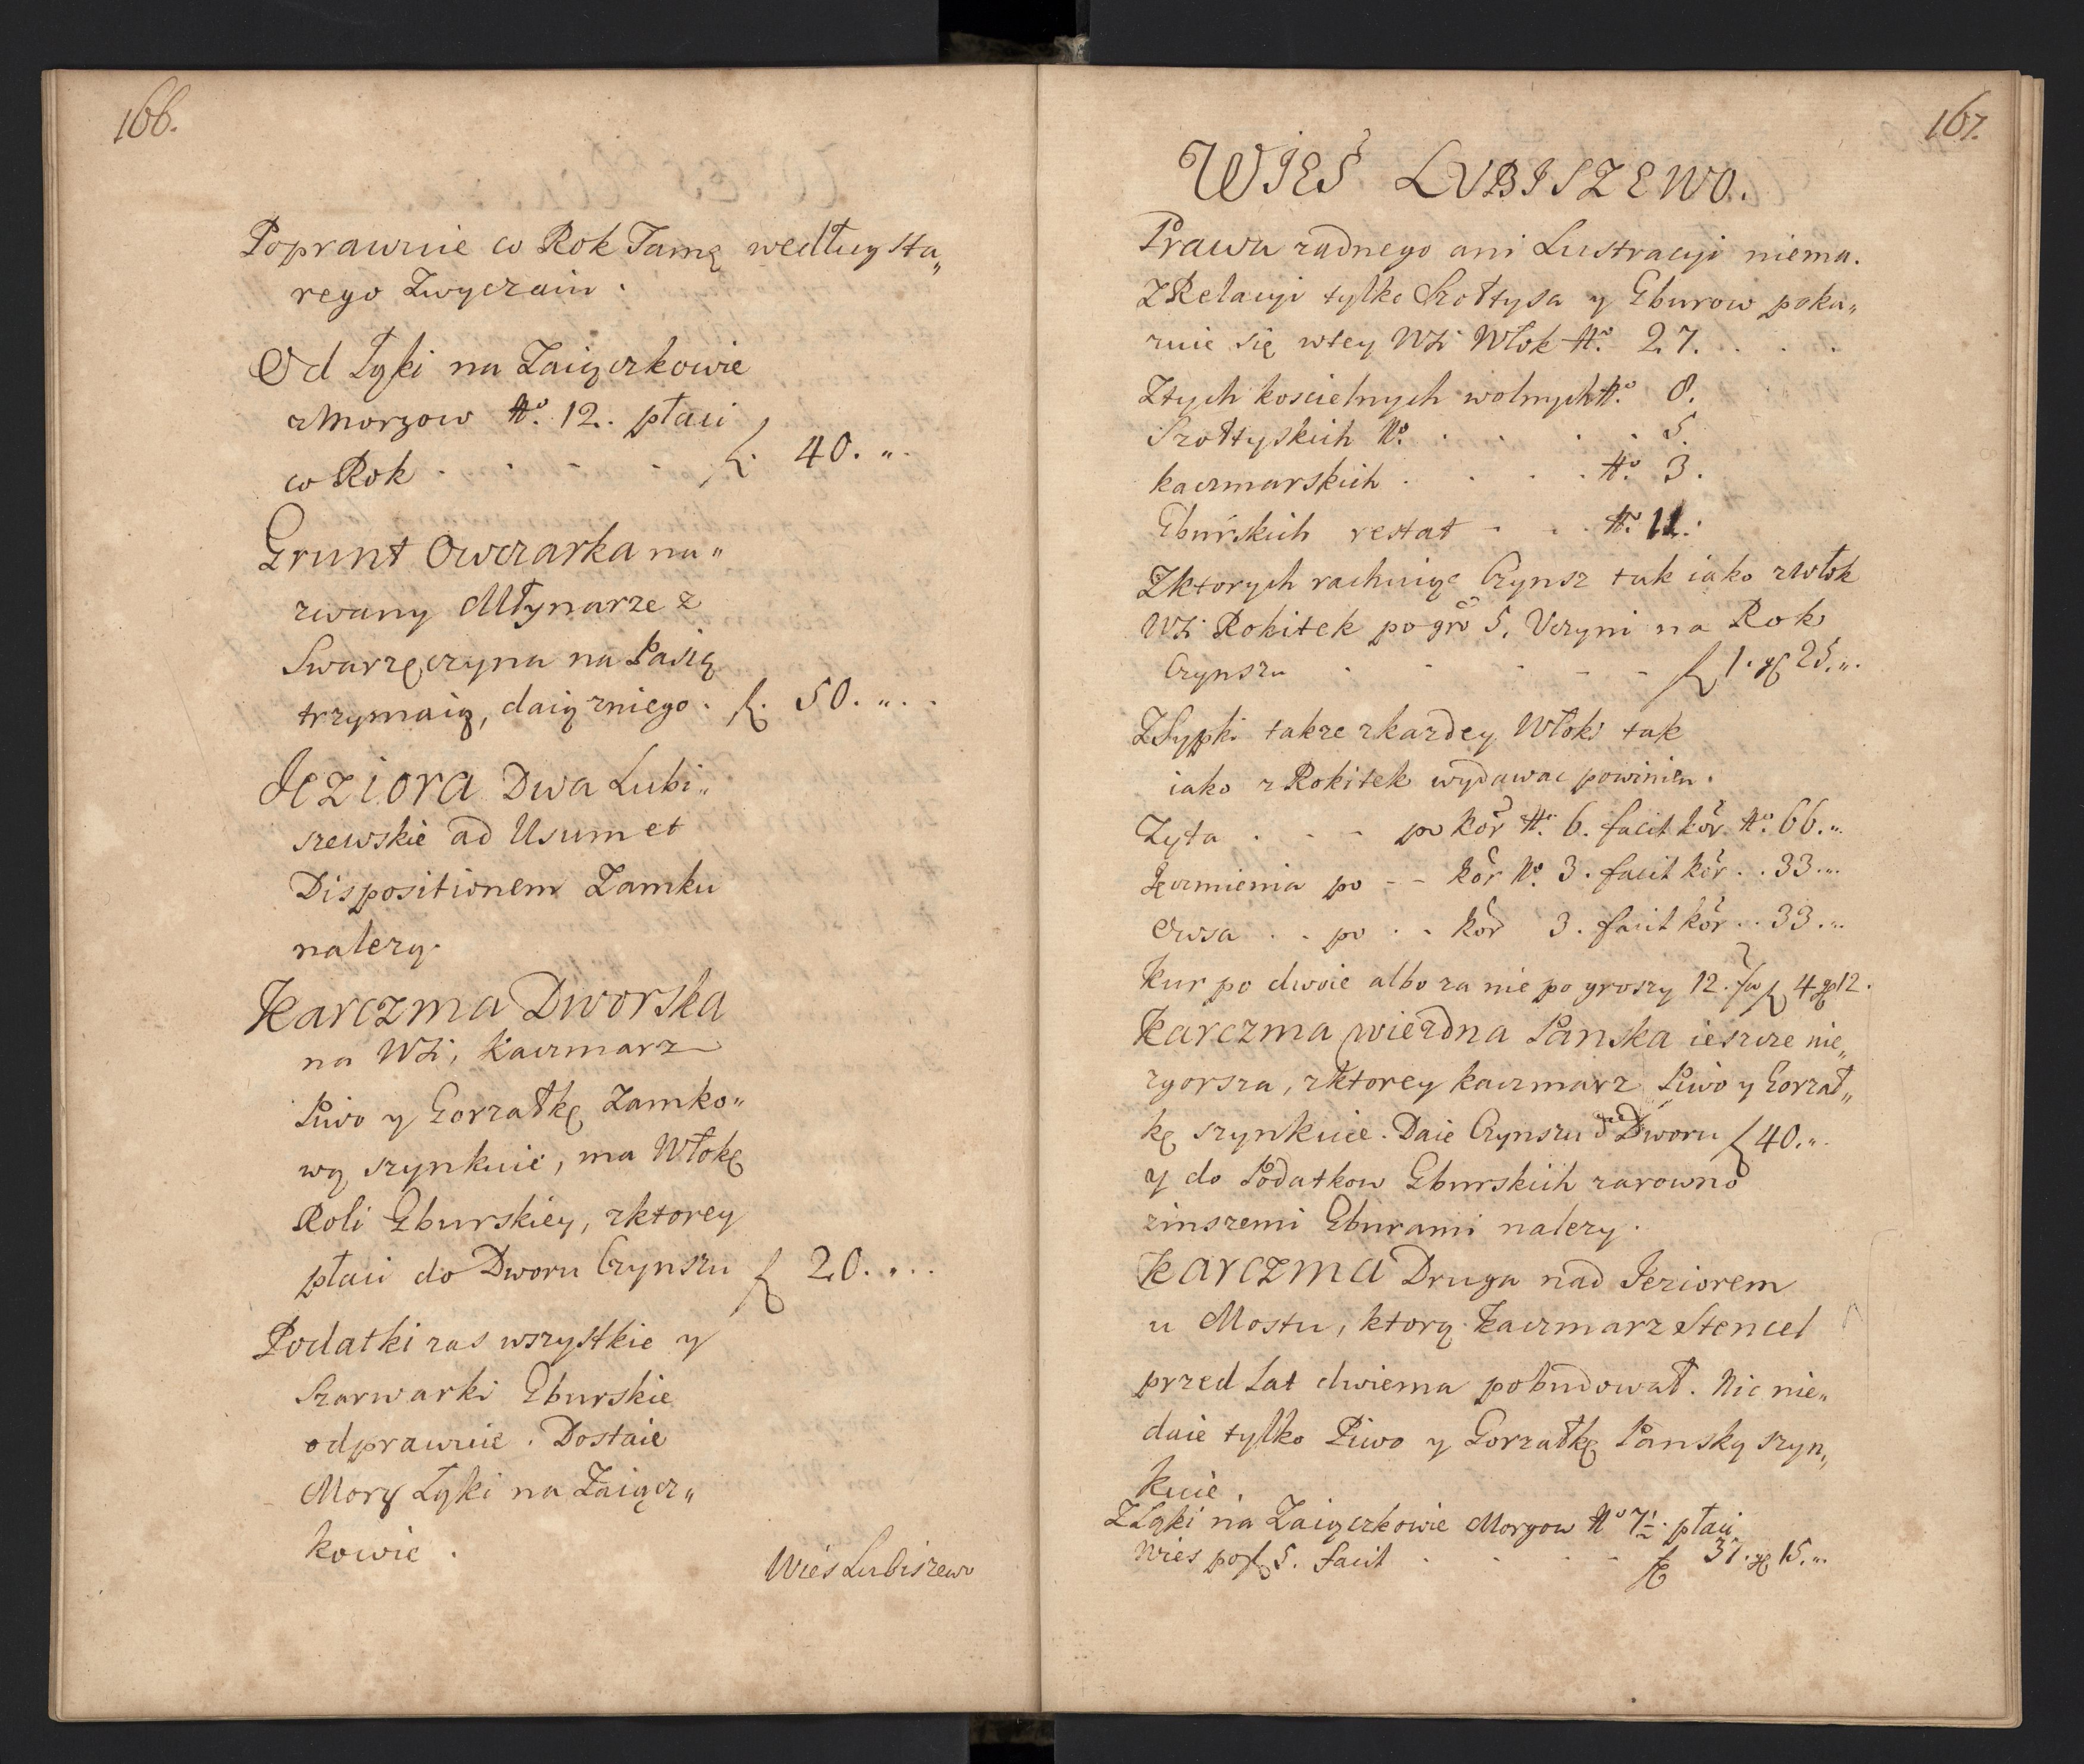 166.
Poprawuie co Rok Tamę według sta„
rego Zwyczaiu.
Od Łąki na Zaiączkowie
z Morgow No. 12. płaci
co Rok . . . . f. 40. „.
Grunt Owczarka na„
zwany Młynarze z
Swarzęczyna na Paszą
trzymaią, daią zniego. f. 50. „. .
Jeziora Dwa Lubi„
szewskie ad Usum et
Dispositionem Zamku
nalezy.
Karczma Dworska
na WSi, Kaczmarz
Piwo y Gorzałkę Zamko„
wą szynkuie, ma Włokę
Roli Gburskiey, zktorey
płaci do Dworu Czynszu f 20. „. .
Podatki zas wszystkie y
Szarwarki Gburskie
odprawuie. Dostaie
Morg Łąki na Zaiącz„
kowie.
Wieś Lubiszewo
167.
WIEŚ LUBISZEWO.
Prawa zadnego ani Lustracyi niema.
ZRelacyi tylko Szołtysa y Gburow poka„
zuie się wtey WSi Włok No. 27. . . .
Ztych koscielnych wolnych No. 8.
Szołtyskich No. . . . . 5.
kaczmarskich . . . . No. 3.
Gburskich restat - . . No. 11.
Zktorych rachuiąc Czynsz tak iako zWłok
WSi Rokitek po gro 5. Uczyni na Rok
Czynszu . . . - - f 1. gr 25. „.
ZSypki takze zkazdey Włoki tak
iako z Rokitek wydawac powinien.
Zyta . - - po kor No. 6. facit kor. No. 66. „.
Jęczmienia po - - kor No. 3. facit kor . . 33. „.
Owsa . . po . - kor 3. facit kor . . 33. „.
Kur po dwoie albo za nie po groszy 12. f 4 gr 12.
Karczma wiezdna Panska ieszcze nie„
zgorsza, zktorey kaczmarz Piwo y Gorzał„
kę szynkuie. Daie Czynszu do Dworu f 40. „.
y do Podatkow Gburskich zarowno
zinszemi Gburami nalezy.
Karczma Druga nad Jeziorem
u Mostu, ktorą Kaczmarz Stencel
przed Lat dwiema pobudował. Nic nie„
daie tylko Piwo y Gorzałkę Panską szyn„
kuie.
ZŁąki na Zaiączkowie Morgow No 7½. płaci
Wies po f 5. facit . . . . - f 37. gr 15. „.